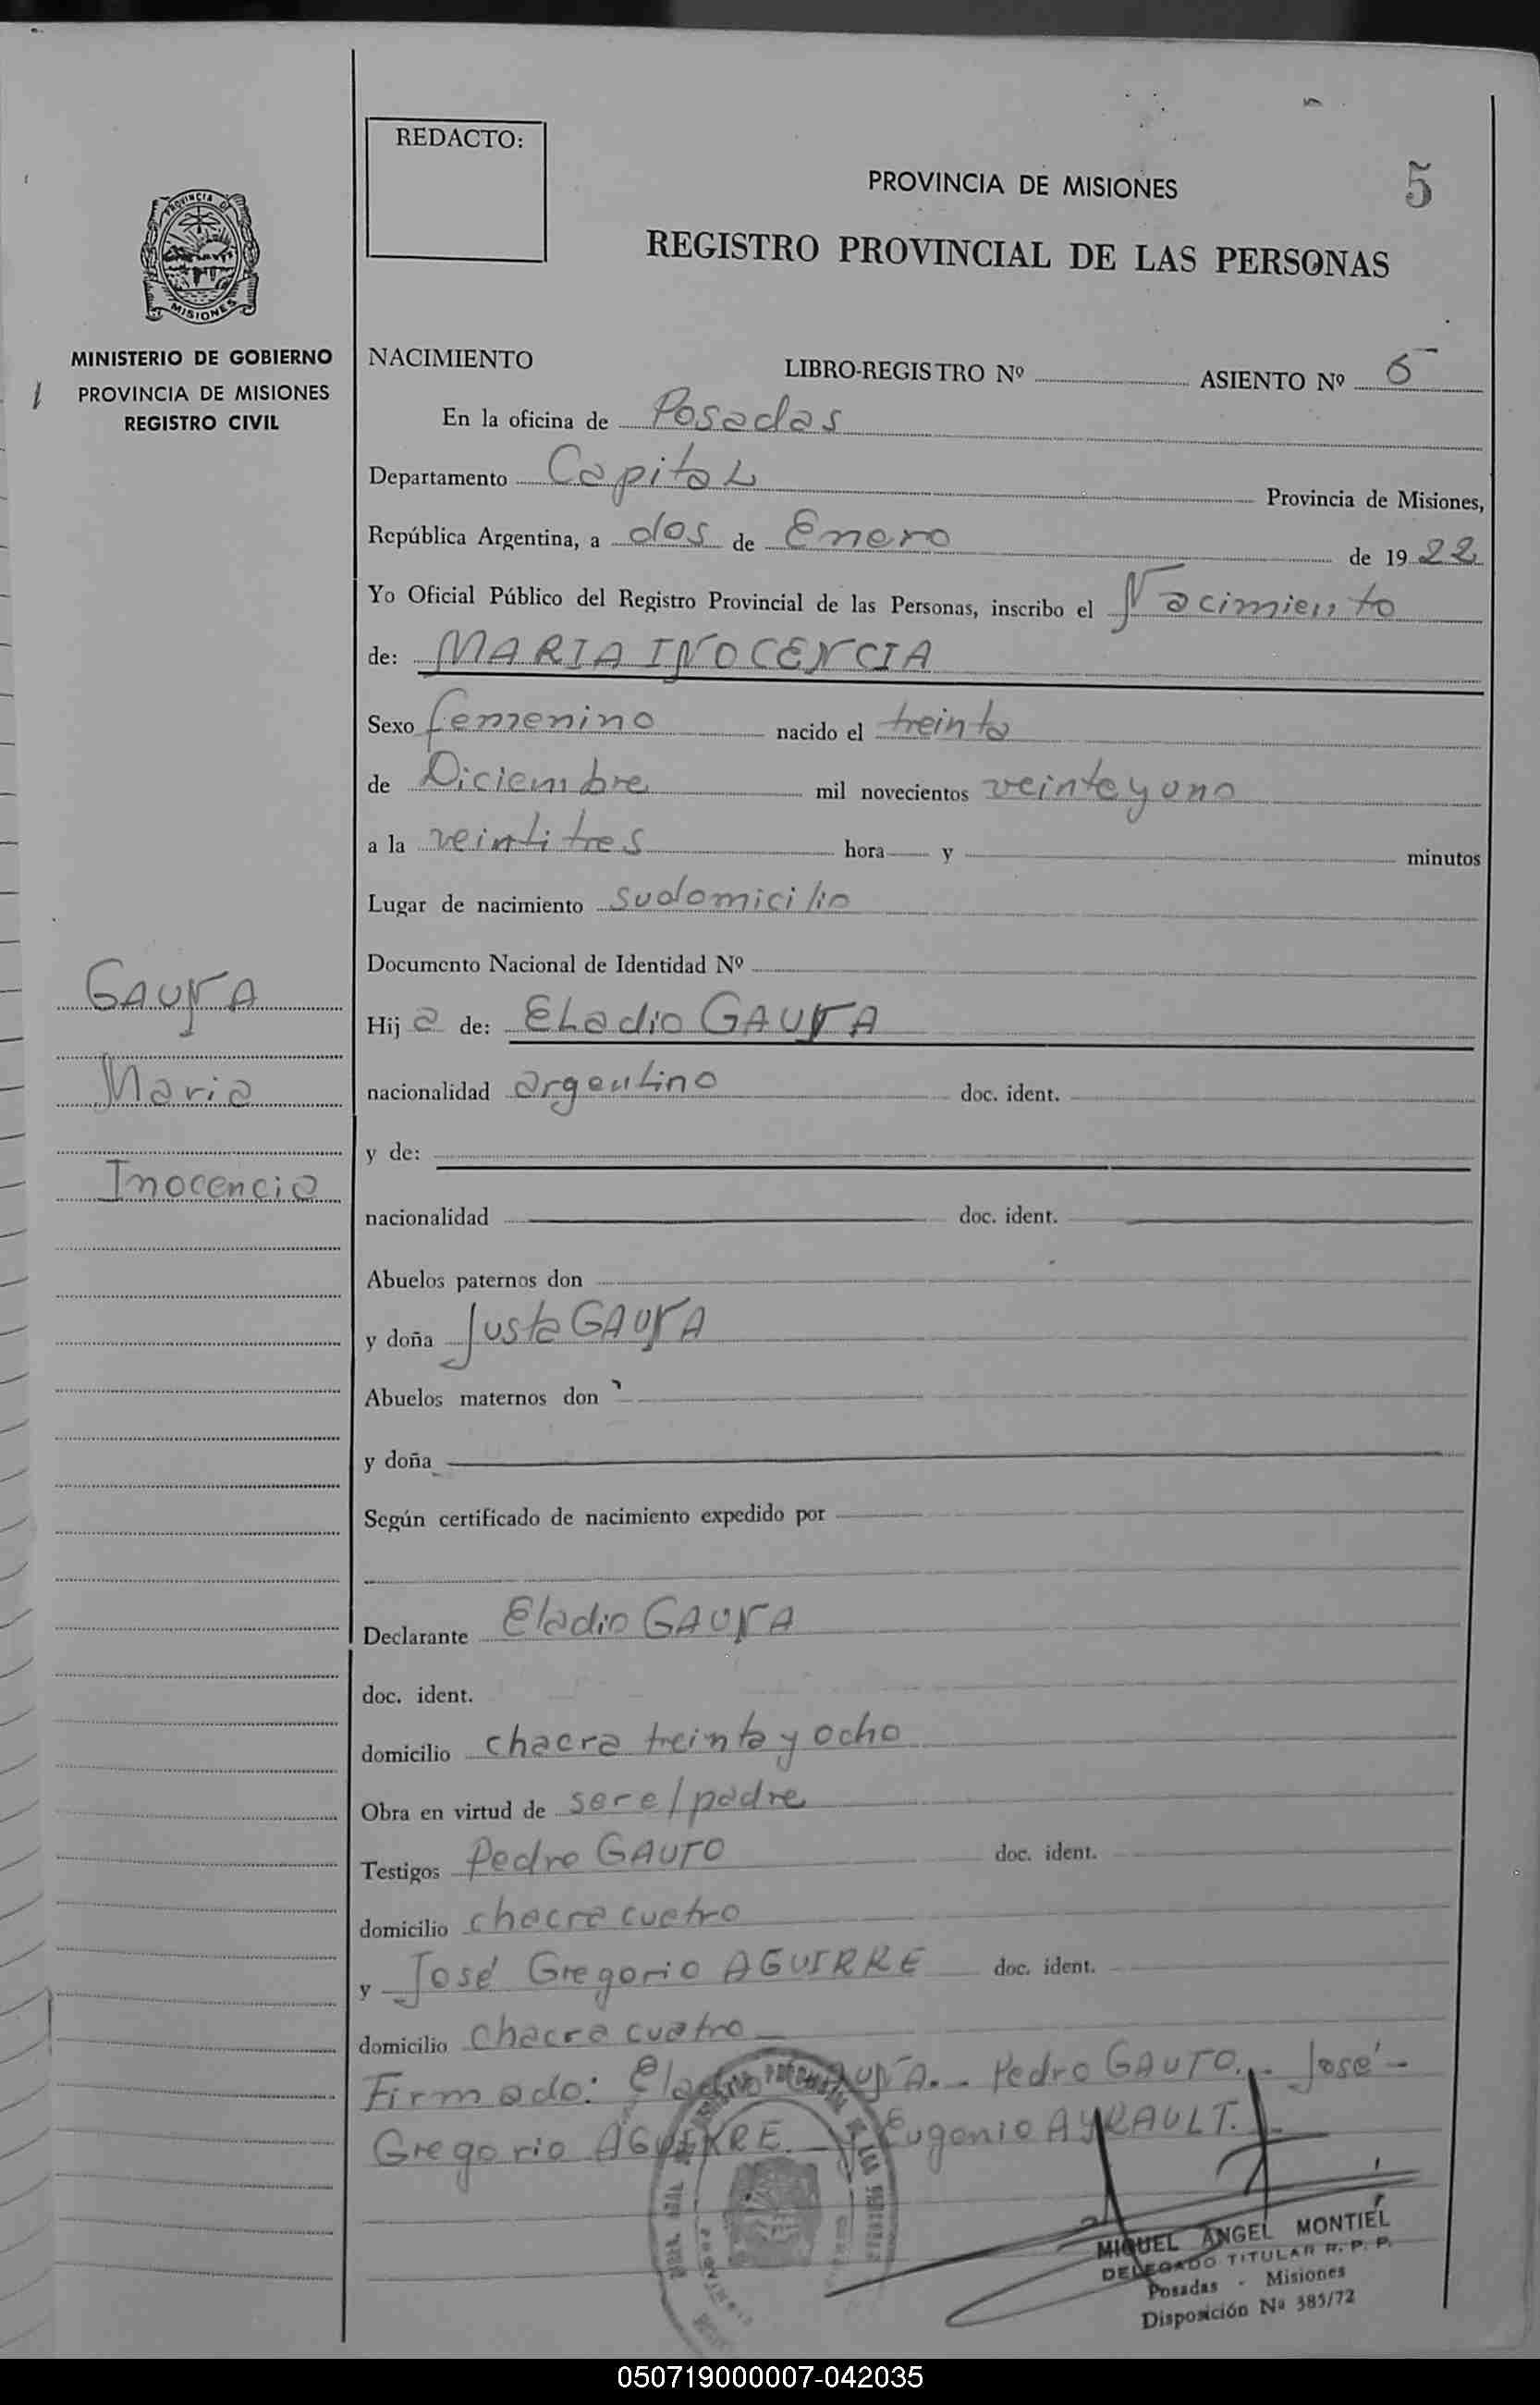 5
REDACTO:
PROVINCIA DE MISIONES
REGISTRO PROVINCIAL DE LAS PERSONAS
PROVINCIA DE
MISIONES
MINISTERIO DE GOBIERNO
PROVINCIA DE MISIONES
REGISTRO CIVIL
NACIMIENTO LIBRO-REGISTRO Nº ASIENTO Nº 5
En la oficina de Posadas
Departamento Capital Provincia de Misiones,
República Argentina, a dos de Enero de 1922
Yo Oficial Público del Registro Provincial de las Personas, inscribo el Nacimiento
de: MARIA INOCENCIA
Sexo femenino nacido el treinta
de Diciembre mil novecientos veinte y uno
a la veintitres hora y minutos
Lugar de nacimiento su domicilio
Documento Nacional de Identidad Nº
GAUNA
Maria
Inocencia
Hij a de: Eladio GAUNA
nacionalidad argentino doc. ident.
y de:
nacionalidad doc. ident.
Abuelos paternos don
y doña Justa GAUNA
Abuelos maternos don
y doña
Según certificado de nacimiento expedido por
Declarante Eladio GAUNA
doc. ident.
domicilio chacra treinta y ocho
Obra en virtud de ser el padre
Testigos Pedro GAUTO doc. ident.
domicilio chacra cuatro
y José Gregorio AGUIRRE doc. ident.
domicilio chacra cuatro
Firmado: Eladio GAUNA.- Pedro GAUTO.- José-
Gregorio AGUIRRE.- Eugenio AYRAULT.-
MIGUEL ANGEL MONTIEL
DELEGADO TITULAR R. P. P.
Posadas - Misiones
Disposición Nº 385/72
050719000007-042035